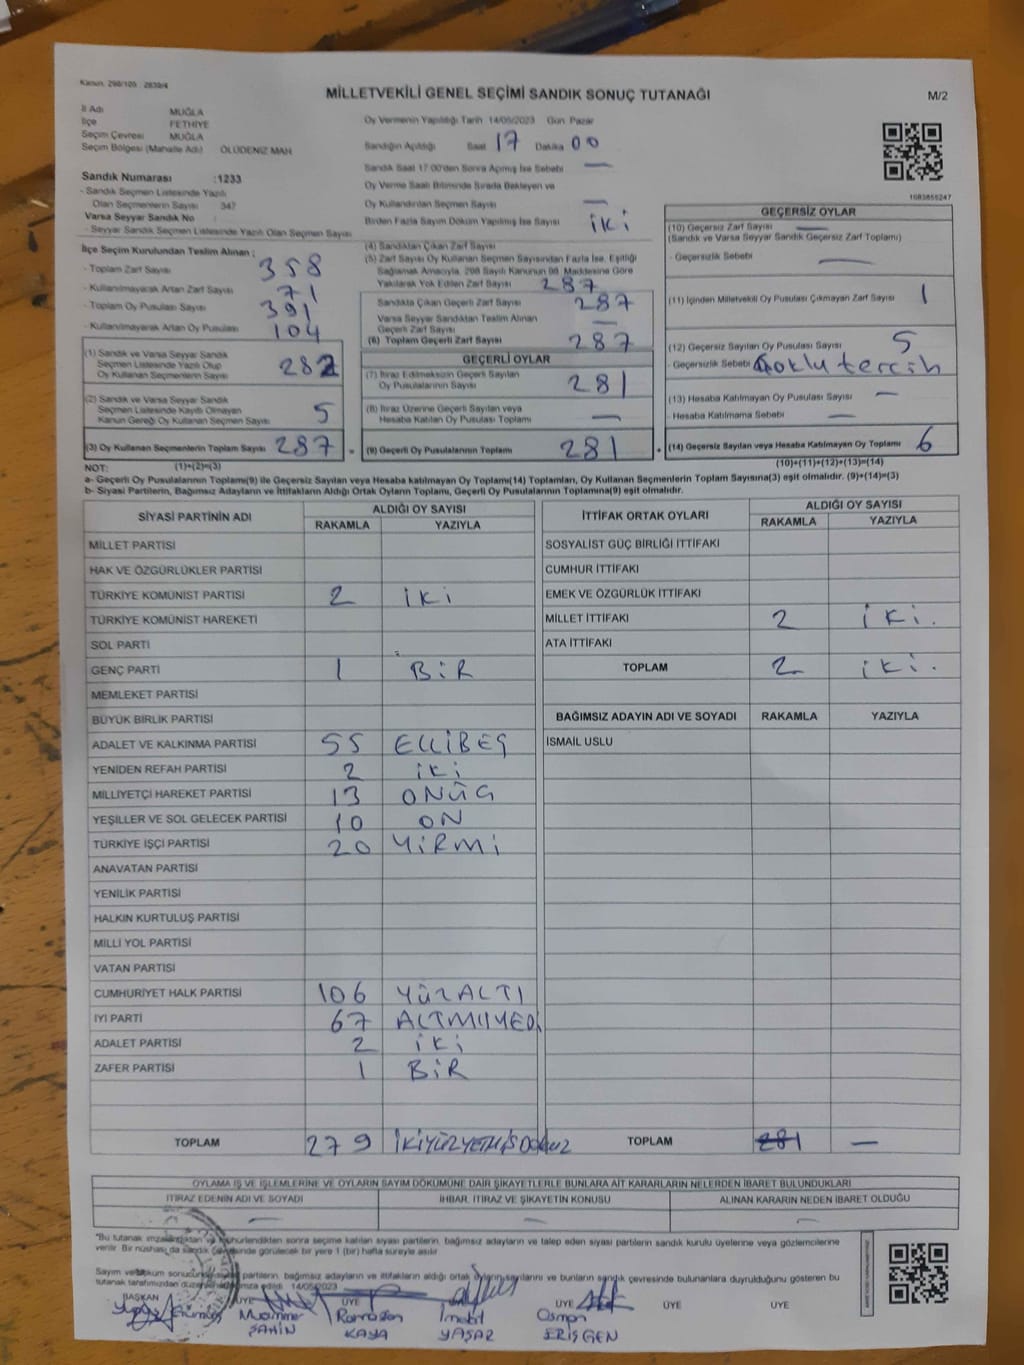 Kanun: 298/105 2839/4
MİLLETVEKİLİ GENEL SEÇİMİ SANDIK SONUÇ TUTANAĞI
M/2
İl Adı MUĞLA
İlçe FETHİYE
Seçim Çevresi MUĞLA
Seçim Bölgesi (Mahalle Adı) ÖLÜDENİZ MAH.
Sandık Numarası :1233
- Sandık Seçmen Listesinde Yazılı
Olan Seçmenlerin Sayısı 347
Varsa Seyyar Sandık No :
- Seyyar Sandık Seçmen Listesinde Yazılı Olan Seçmen Sayısı
Oy Vermenin Yapıldığı Tarih 14/05/2023 Gün Pazar
Sandığın Açıldığı Saat 17 Dakika 00
Sandık Saat 17:00'den Sonra Açılmış İse Sebebi —
Oy Verme Saati Bitiminde Sırada Bekleyen ve
Oy Kullandırılan Seçmen Sayısı —
Birden Fazla Sayım Döküm Yapılmış İse Sayısı iki
1083855247
İlçe Seçim Kurulundan Teslim Alınan :
- Toplam Zarf Sayısı 358
- Kullanılmayarak Artan Zarf Sayısı 71
- Toplam Oy Pusulası Sayısı 391
- Kullanılmayarak Artan Oy Pusulası 104
(1) Sandık ve Varsa Seyyar Sandık
Seçmen Listesinde Yazılı Olup
Oy Kullanan Seçmenlerin Sayısı 282
(2) Sandık ve Varsa Seyyar Sandık
Seçmen Listesinde Kayıtlı Olmayan
Kanun Gereği Oy Kullanan Seçmen Sayısı 5
(3) Oy Kullanan Seçmenlerin Toplam Sayısı 287
(4) Sandıktan Çıkan Zarf Sayısı
(5) Zarf Sayısı Oy Kullanan Seçmen Sayısından Fazla İse, Eşitliği
Sağlamak Amacıyla, 298 Sayılı Kanunun 98. Maddesine Göre
Yakılarak Yok Edilen Zarf Sayısı 287
Sandıkta Çıkan Geçerli Zarf Sayısı 287
Varsa Seyyar Sandıktan Teslim Alınan
Geçerli Zarf Sayısı —
(6) Toplam Geçerli Zarf Sayısı 287
GEÇERLİ OYLAR
(7) İtiraz Edilmeksizin Geçerli Sayılan
Oy Pusulalarının Sayısı 281
(8) İtiraz Üzerine Geçerli Sayılan veya
Hesaba Katılan Oy Pusulası Toplamı —
(9) Geçerli Oy Pusulalarının Toplamı 281
GEÇERSİZ OYLAR
(10) Geçersiz Zarf Sayısı —
(Sandık ve Varsa Seyyar Sandık Geçersiz Zarf Toplamı)
- Geçersizlik Sebebi —
(11) İçinden Milletvekili Oy Pusulası Çıkmayan Zarf Sayısı 1
(12) Geçersiz Sayılan Oy Pusulası Sayısı 5
- Geçersizlik Sebebi Çoklu tercih
(13) Hesaba Katılmayan Oy Pusulası Sayısı —
- Hesaba Katılmama Sebebi —
(14) Geçersiz Sayılan veya Hesaba Katılmayan Oy Toplamı 6
NOT: (1)+(2)=(3)
(10)+(11)+(12)+(13)=(14)
a- Geçerli Oy Pusulalarının Toplamı(9) ile Geçersiz Sayılan veya Hesaba katılmayan Oy Toplamı(14) Toplamları, Oy Kullanan Seçmenlerin Toplam Sayısına(3) eşit olmalıdır. (9)+(14)=(3)
b- Siyasi Partilerin, Bağımsız Adayların ve İttifakların Aldığı Ortak Oyların Toplamı, Geçerli Oy Pusulalarının Toplamına(9) eşit olmalıdır.
SİYASİ PARTİNİN ADI ALDIĞI OY SAYISI
RAKAMLA YAZIYLA
MİLLET PARTİSİ
HAK VE ÖZGÜRLÜKLER PARTİSİ
TÜRKİYE KOMÜNİST PARTİSİ 2 iki
TÜRKİYE KOMÜNİST HAREKETİ
SOL PARTİ
GENÇ PARTİ 1 BiR
MEMLEKET PARTİSİ
BÜYÜK BİRLİK PARTİSİ
ADALET VE KALKINMA PARTİSİ 55 ELLİBEŞ
YENİDEN REFAH PARTİSİ 2 iki
MİLLİYETÇİ HAREKET PARTİSİ 13 ONÜÇ
YEŞİLLER VE SOL GELECEK PARTİSİ 10 ON
TÜRKİYE İŞÇİ PARTİSİ 20 YİRMİ
ANAVATAN PARTİSİ
YENİLİK PARTİSİ
HALKIN KURTULUŞ PARTİSİ
MİLLİ YOL PARTİSİ
VATAN PARTİSİ
CUMHURİYET HALK PARTİSİ 106 YÜZALTI
İYİ PARTİ 67
ADALET PARTİSİ 2 iki
ZAFER PARTİSİ 1 BiR
TOPLAM 279 İKİYÜZYETMİŞDOKUZ
İTTİFAK ORTAK OYLARI ALDIĞI OY SAYISI
RAKAMLA YAZIYLA
SOSYALİST GÜÇ BİRLİĞİ İTTİFAKI
CUMHUR İTTİFAKI
EMEK VE ÖZGÜRLÜK İTTİFAKI
MİLLET İTTİFAKI 2 iki.
ATA İTTİFAKI
TOPLAM 2 iki.
BAĞIMSIZ ADAYIN ADI VE SOYADI RAKAMLA YAZIYLA
İSMAİL USLU
TOPLAM 281 —
OYLAMA İŞ VE İŞLEMLERİNE VE OYLARIN SAYIM DÖKÜMÜNE DAİR ŞİKAYETLERLE BUNLARA AİT KARARLARIN NELERDEN İBARET BULUNDUKLARI
İTİRAZ EDENİN ADI VE SOYADI İHBAR, İTİRAZ VE ŞİKAYETİN KONUSU ALINAN KARARIN NEDEN İBARET OLDUĞU
— — —
"Bu tutanak imzalandıktan ve mühürlendikten sonra seçime katılan siyasi partilerin, bağımsız adayların ve talep eden siyasi partilerin sandık kurulu üyelerine veya gözlemcilerine
verilir. Bir nüshası da sandık çevresinde görülecek bir yere 1 (bir) hafta süreyle asılır.
Sayım ve döküm sonucunda siyasi partilerin, bağımsız adayların ve ittifakların aldığı ortak oyların sayılarını ve bunların sandık çevresinde bulunanlara duyrulduğunu gösteren bu
tutanak tarafımızdan düzenlenip imza edildi. 14/05/2023
BAŞKAN ÜYE ÜYE ÜYE ÜYE ÜYE
Muammer Ramadan İsmail Osman
ŞAHİN KAYA YAŞAR ERİŞGEN